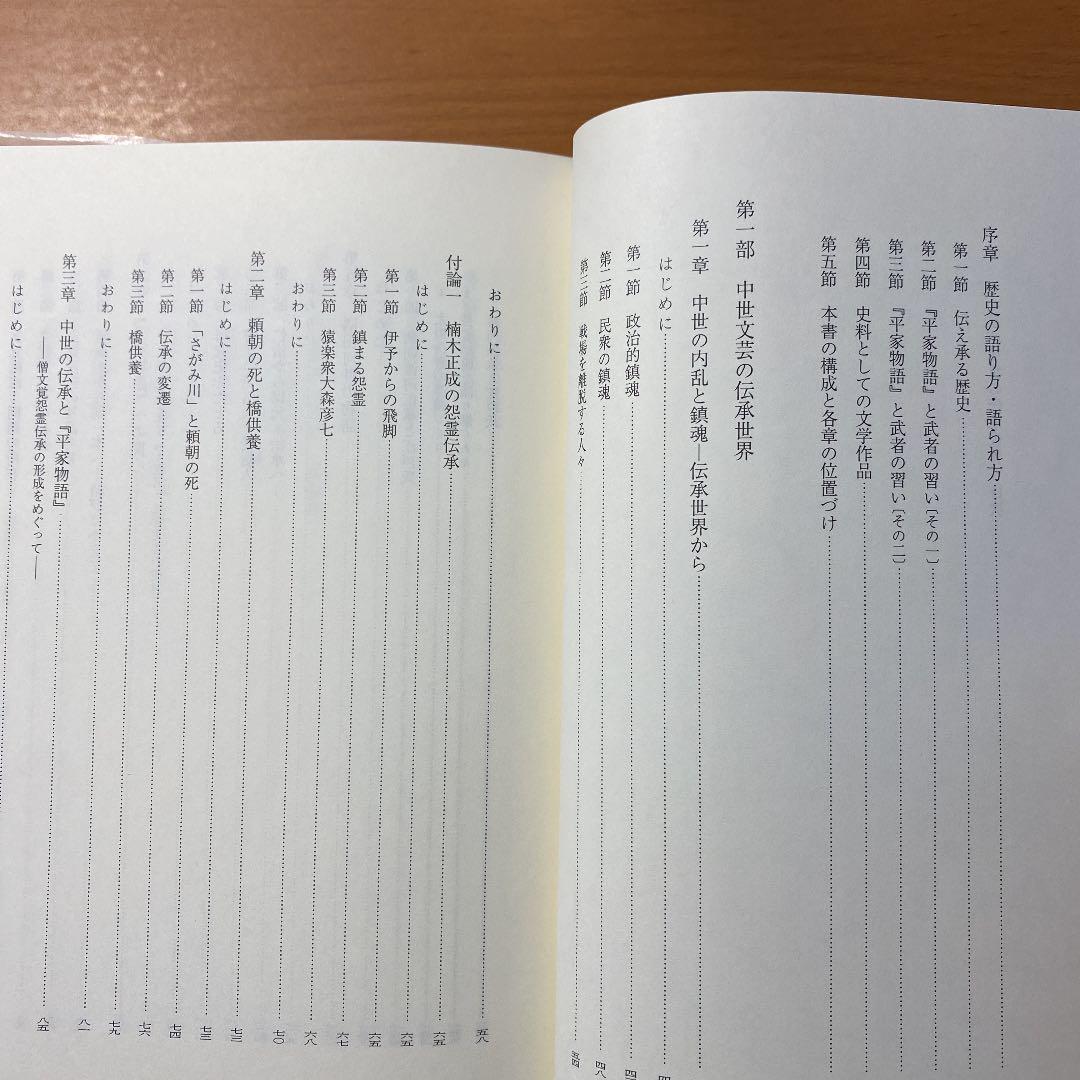 序章　歴史の語り方・語られ方
第一節　伝え承る歴史
第二節　『平家物語』と武者の習い〔その一〕
第三節　『平家物語』と武者の習い〔その二〕
第四節　史料としての文学作品
第五節　本書の構成と各章の位置づけ
第一部　中世文芸の伝承世界
第一章　中世の内乱と鎮魂―伝承世界から
はじめに
第一節　政治的鎮魂
第二節　民衆の鎮魂……四八
第三節　戦場を離脱する人々……五四
おわりに……五八
付論一　楠木正成の怨霊伝承……六五
はじめに……六五
第一節　伊予からの飛脚……六五
第二節　鎮まる怨霊……六七
第三節　猿楽衆大森彦七……六八
おわりに……七〇
第二章　頼朝の死と橋供養……七三
はじめに……七三
第一節　「さがみ川」と頼朝の死……七四
第二節　伝承の変遷……七六
第三節　橋供養……七九
おわりに……八一
第三章　中世の伝承と『平家物語』……八五
――僧文覚怨霊伝承の形成をめぐって――
はじめに